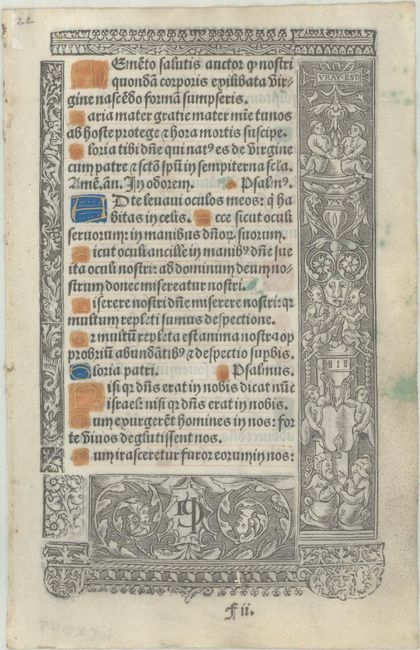 22
Emẽto salutis auctor qꝫ nostri
quondã corporis exilibata vir-
gine nascẽdo formã sumpseris.
aria mater gratie mater mĩe tu nos
ab hoste protege ⁊ hora mortis suscipe.
loria tibi dñe qui nat⁹ es de virgine
cum patre ⁊ sctõ spũ in sempiterna scła.
Amẽ. añ. In odorem. Psalm⁹.
D te leuaui oculos meos: q̃ ha
bitas in celis. cce sicut oculi
seruorum: in manibus dñoꝝ suorum.
icut oculi ancille in manib⁹ dñe sue
ita oculi nostri: ad dominum deum no-
strum donec misereatur nostri.
iserere nostri dñe miserere nostri: qꝛ
multum repleti sumus despectione.
ꝛ multũ repleta est anima nostra op
probriũ abundãtib⁹ ⁊ despectio supbis.
loria patri. Psalmus.
isi qꝛ dñs erat in nobis dicat nũc
israel: nisi qꝛ dñs erat in nobis.
um exurgerẽt homines in nos: for
te viuos deglutissent nos.
um irasceretur furor eorum in nos:
VRAY·EST
f ii.